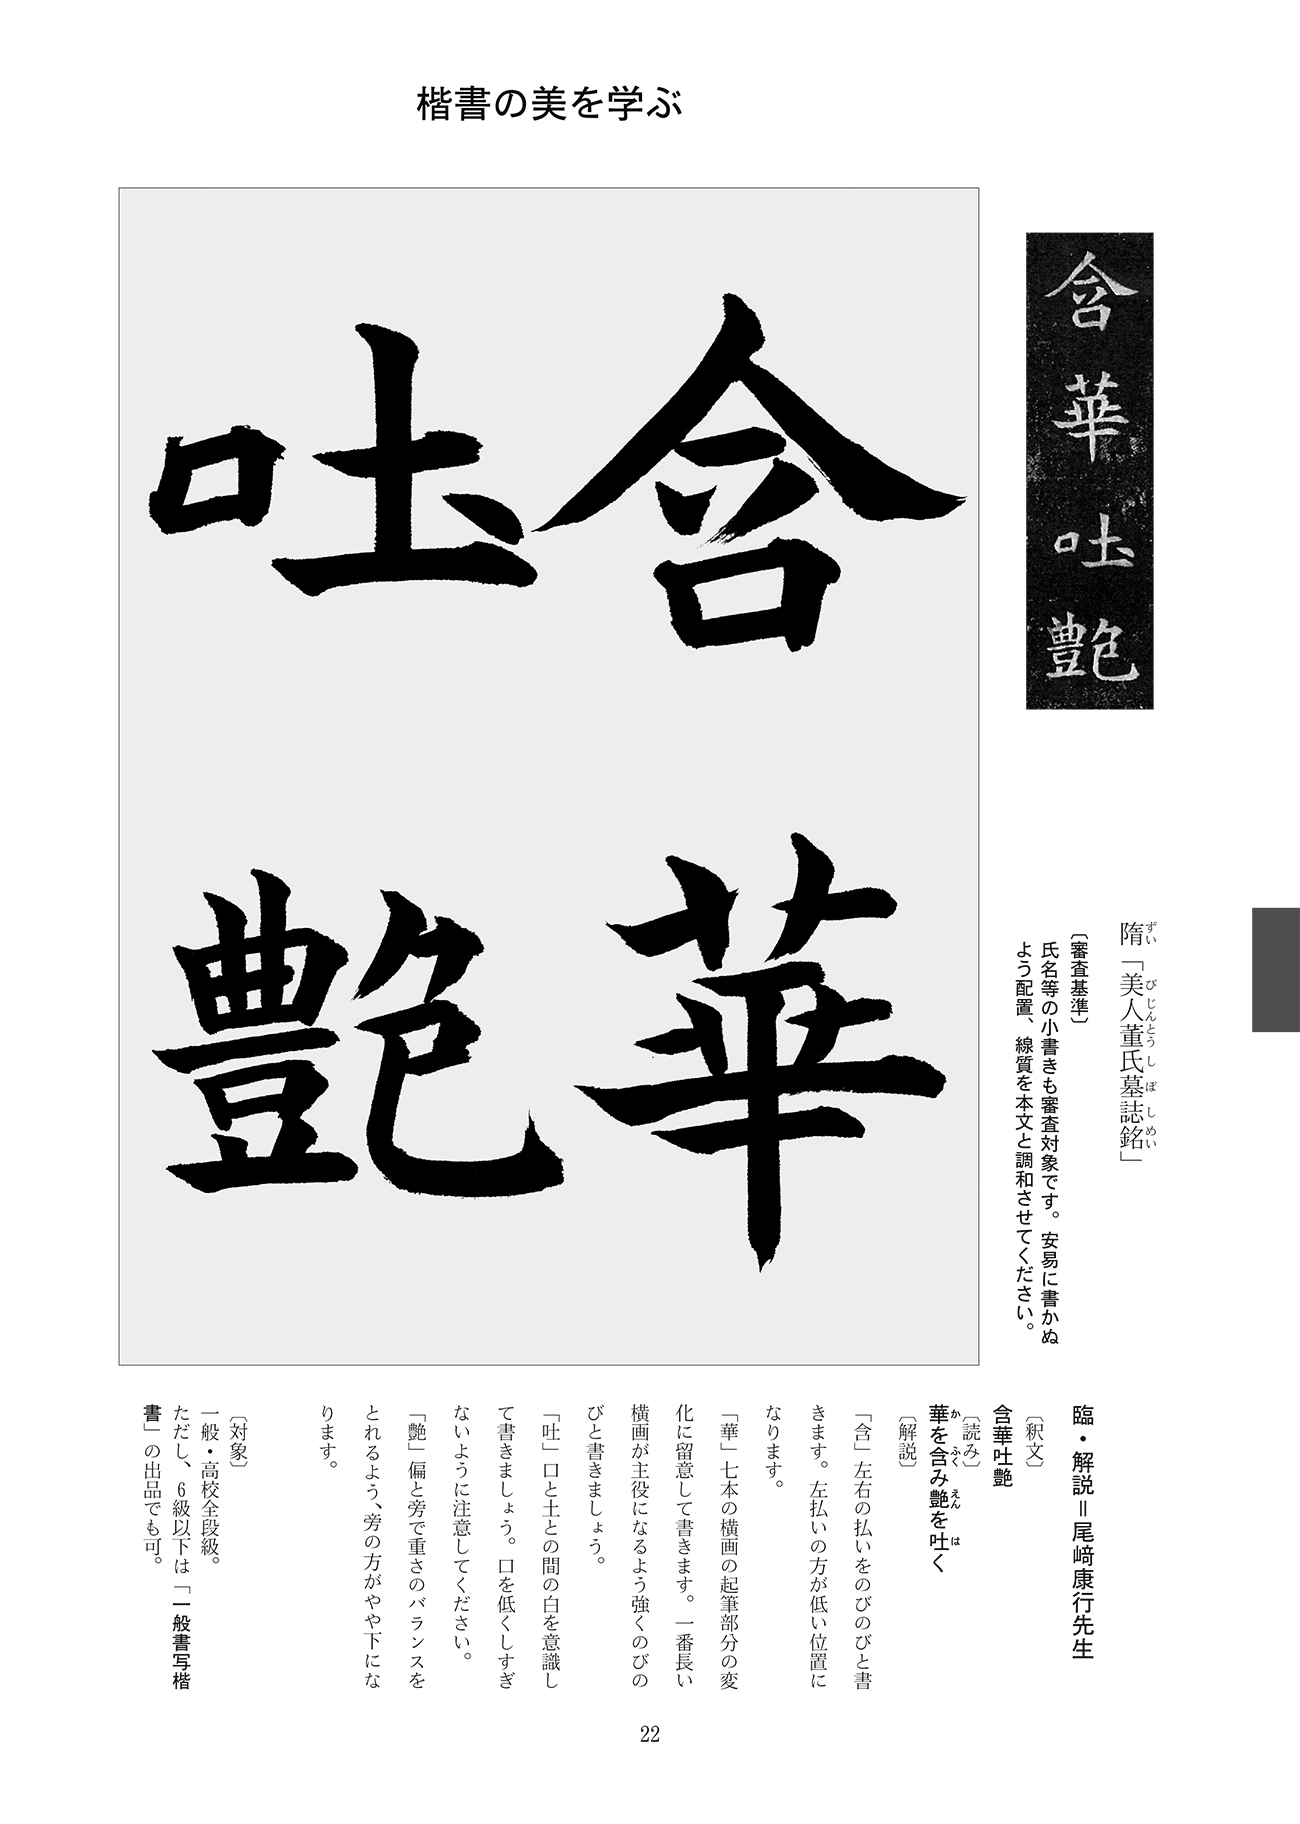 楷書の美を学ぶ
含華吐艶
隋「美人董氏墓誌銘」
ずい びじんとうしぼしめい
〔審査基準〕
氏名等の小書きも審査対象です。安易に書かぬ
よう配置、線質を本文と調和させてください。
含華
吐艶
臨・解説＝尾﨑康行先生
〔釈文〕
含華吐艶
〔読み〕
華を含み艶を吐く
か ふく えん は
〔解説〕
「含」左右の払いをのびのびと書
きます。左払いの方が低い位置に
なります。
「華」七本の横画の起筆部分の変
化に留意して書きます。一番長い
横画が主役になるよう強くのびの
びと書きましょう。
「吐」口と土との間の白を意識し
て書きましょう。口を低くしすぎ
ないように注意してください。
「艶」偏と旁で重さのバランスを
とれるよう、旁の方がやや下にな
ります。
〔対象〕
一般・高校全段級。
ただし、6級以下は「一般書写楷
書」の出品でも可。
22